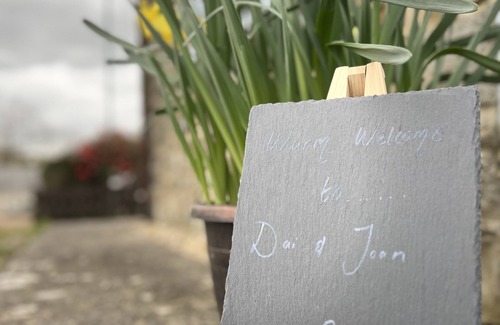 Warm Welcome
to......
Dai & Joan